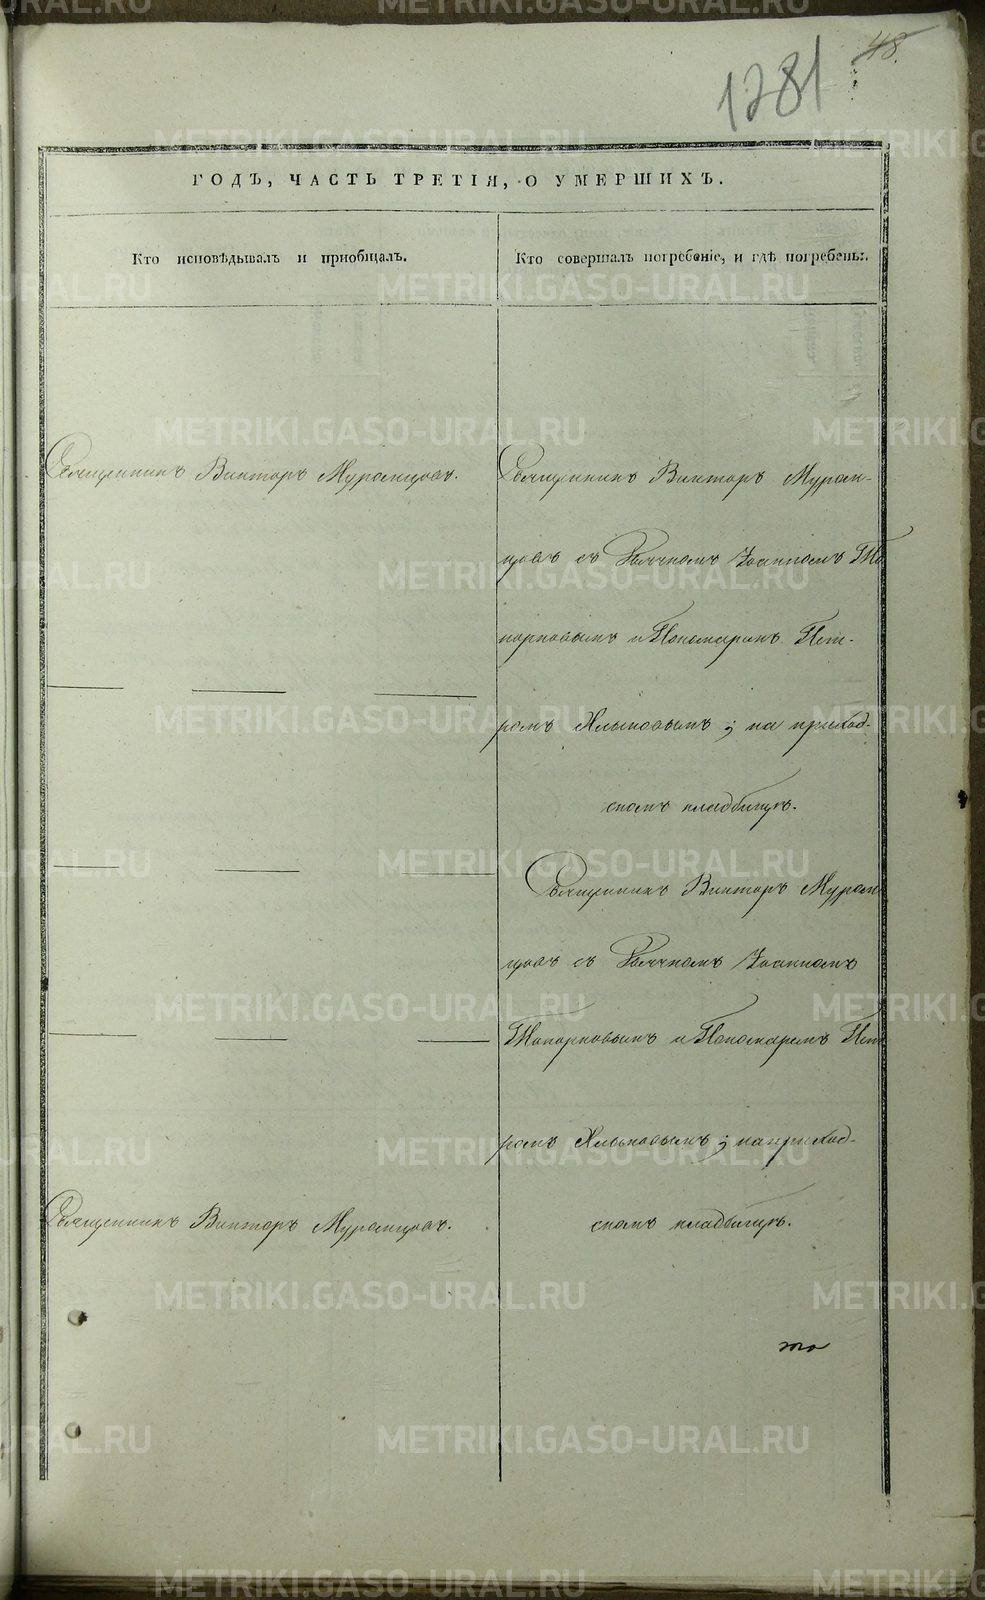 48.
1281
ГОДЪ, ЧАСТЬ ТРЕТІЯ, О УМЕРШИХЪ.
Кто исповѣдывалъ и приобщалъ.
Кто совершалъ погребеніе, и гдѣ погребены.
Священникъ Викторъ Мурамцовъ.
Священникъ Викторъ Мурам-
цовъ съ Дьячкомъ Іоанномъ То
порковымъ и Пономаремъ Пет-
ромъ Хлыновымъ; на приход-
скомъ кладбищѣ.
Священникъ Викторъ Мурам
цовъ съ Дьячкомъ Іоанномъ
Топорковымъ и Пономаремъ Пет
ромъ Хлыновымъ; на приход-
скомъ кладбищѣ.
Священникъ Викторъ Мурамцовъ.
METRIKI.GASO-URAL.RU